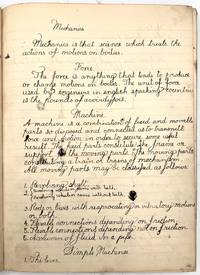 Mechanics
Mechanics is that science which treats the
actions of motions on bodies.
Force
The force is anything that tends to produce
or change motions on bodies. The unit of force
used by engineers in english speaking countries
is the pounds of avoirdupois.
Machine
A machine is a combination of fixed and movable
parts so disposed and connected as to transmit
force and motion in order to secure some useful
result. The fixed parts constitute the frame or
support of the moving parts. The moving parts
constitute the train or trains of mechanism.
All moving parts may be classified as follows:
1. Revolving
2.
3. Rods or bars with reciprocating or vibratory motions
or both.
4. Flexible connections depending on friction.
5. Flexible connections depending not on friction
6. A column of fluid in a pipe.
Simple Machines
1. The lever